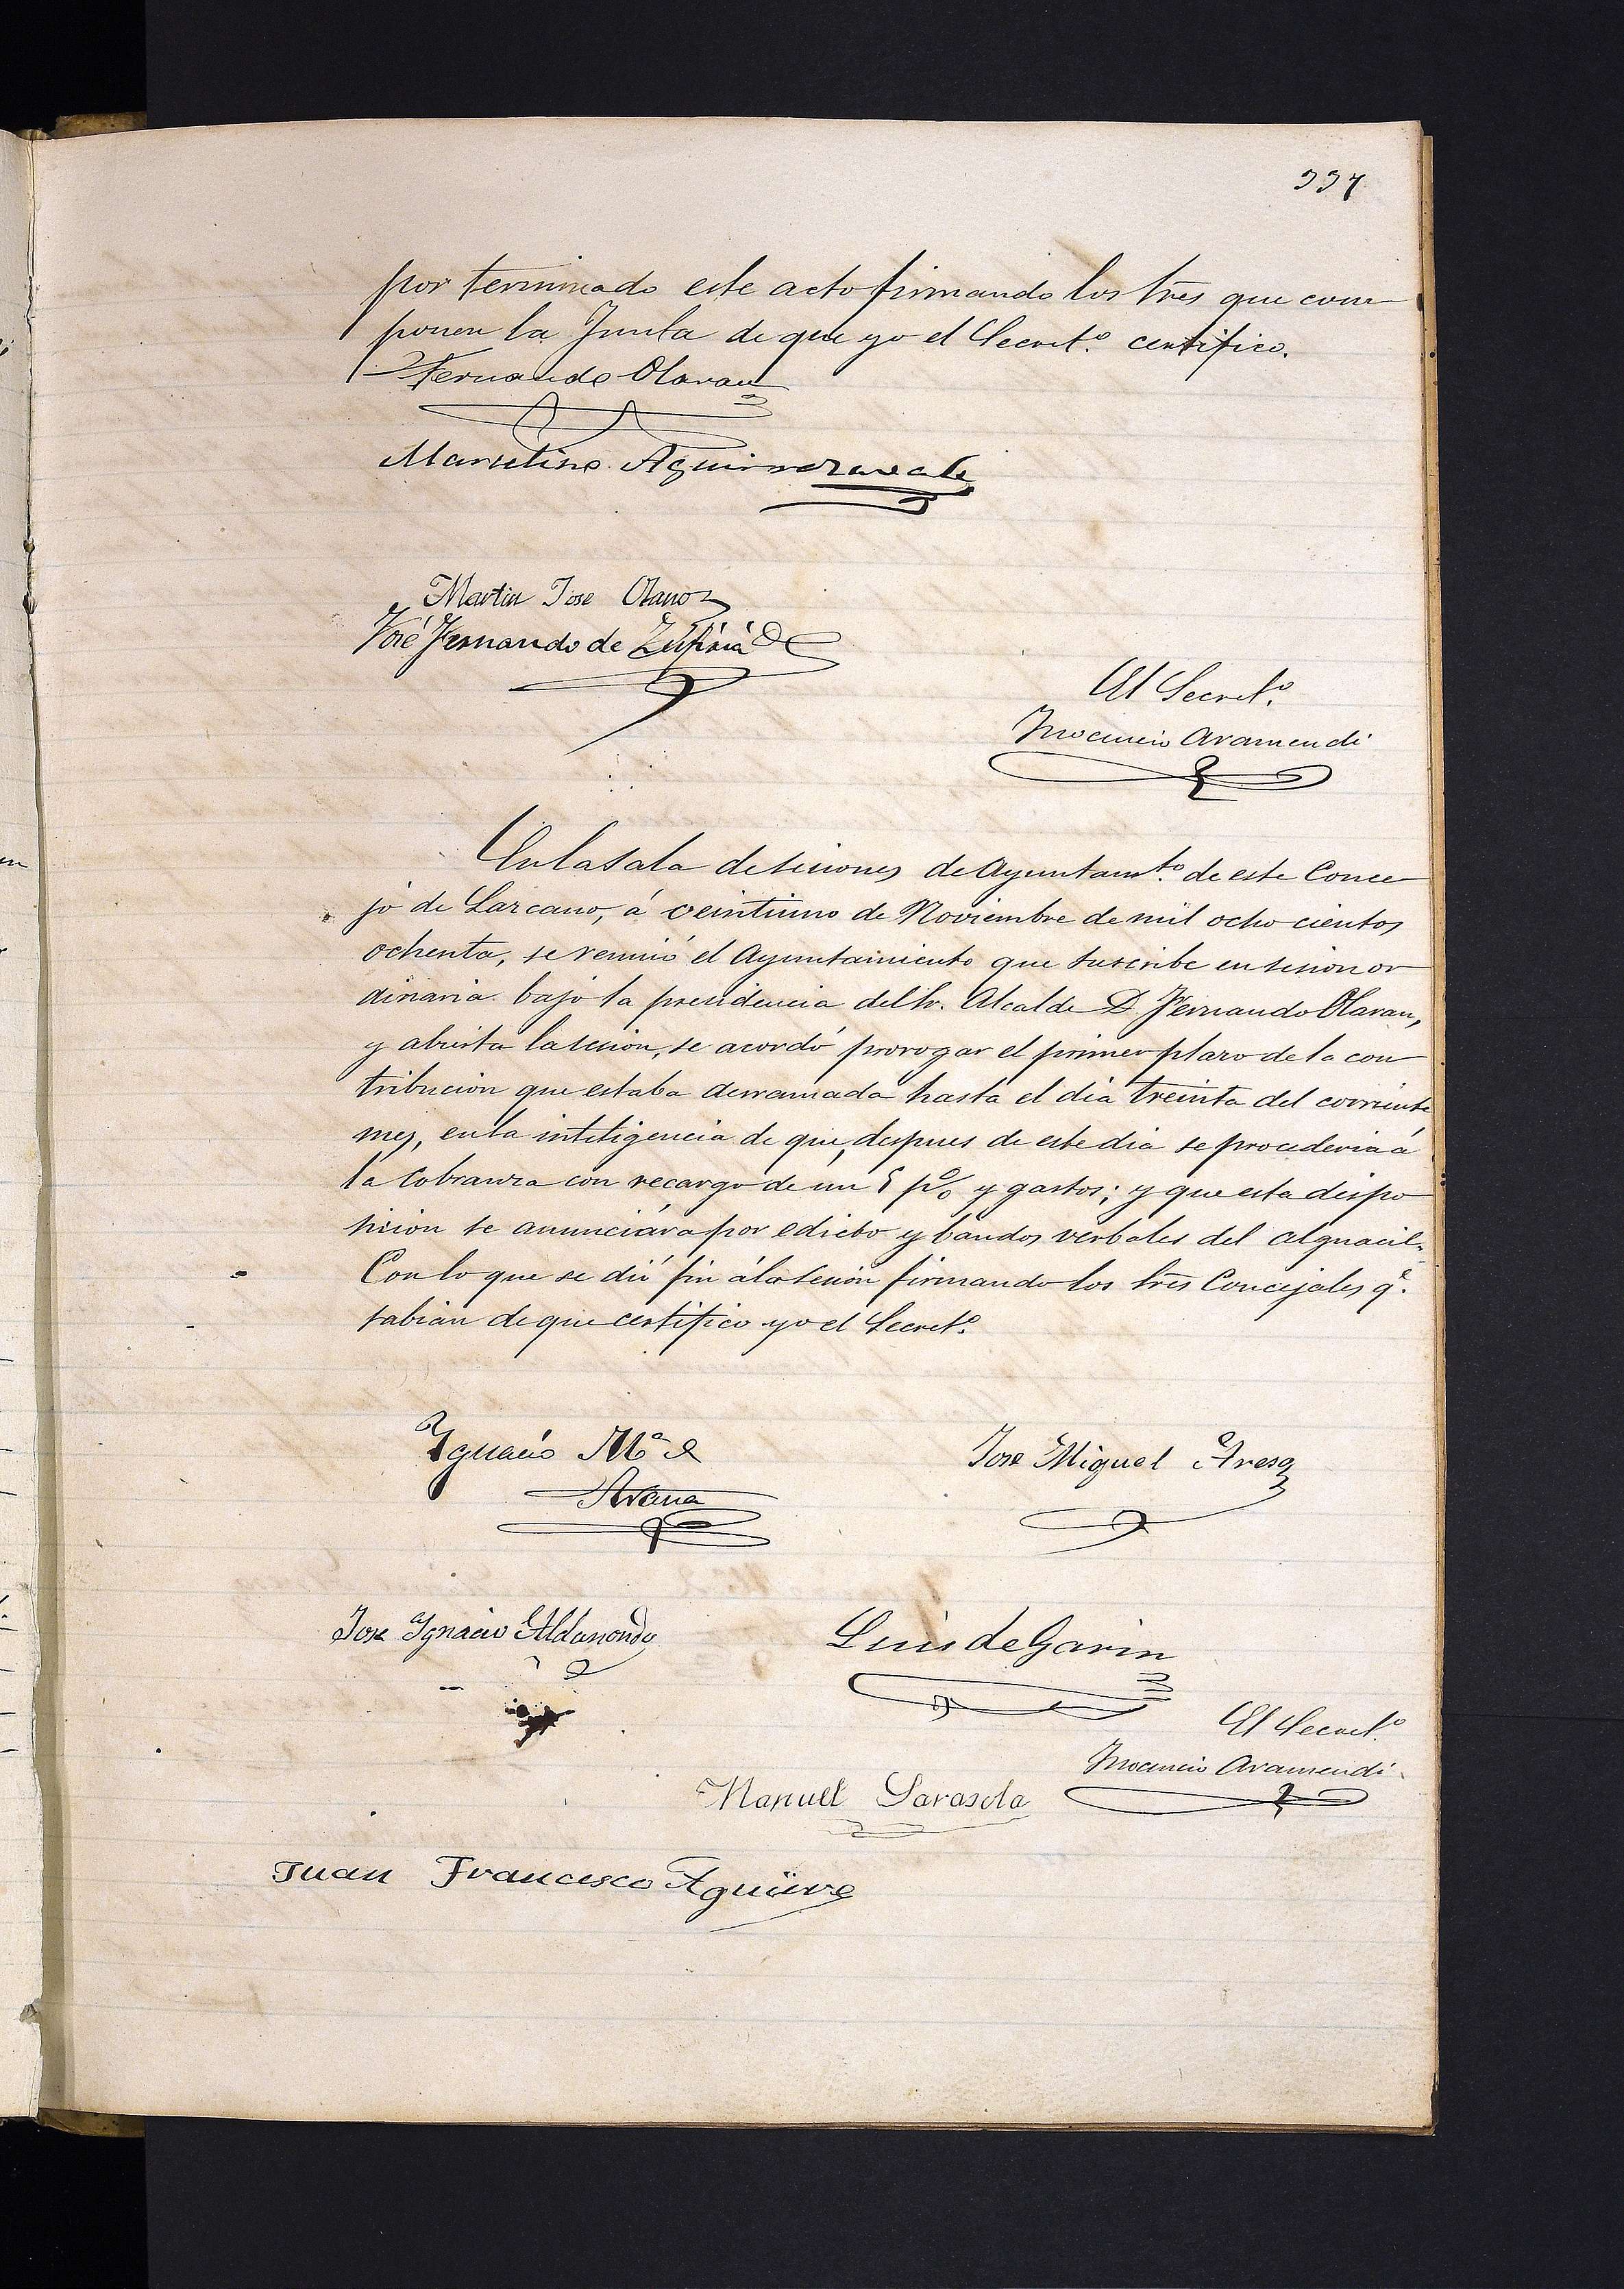 337
por terminado este acto firmando los Sres que com-
ponen la Junta de que yo el Secret.º certifico.
Fernando Olaran
Marcelino Aguirrezavala
Martin Jose Olano
José Fernando de Zufiria
El Secret.º
Inocencio Aramendi
En la Sala de sesiones de Ayuntamt.º de este Conce-
jo de Lazcano, á veintiuno de Noviembre de mil ocho cientos
ochenta, se reunió el Ayuntamiento que suscribe en sesion or
dinaria bajo la presidencia del Sr. Alcalde D. Fernando Olaran,
y abierta la sesion, se acordó prorogar el primer plazo de la con
tribucion que estaba derramada hasta el dia treinta del corriente
mes, en la inteligencia de que, despues de este dia se procederia á
la Cobranza con recargo de un 5 p% y gastos; y que esta dispo
sicion se anunciára por edicto y bandos verbales del alguacil.
Con lo que se dió fin á la sesión firmando los Sres Concejales q.e
sabian de que certifico yo el Secret.º
Ignacio Mª de
Arana
Jose Miguel Aresa
Jose Ygnacio Aldanondo
Luis de Garin
El Secret.º
Inocencio Aramendi
Manuel Sarasola
Juan Francisco Aguirre